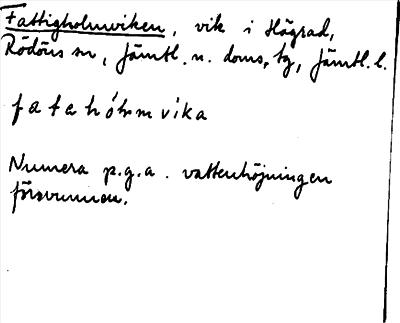 Fattigholmviken, vik i Högrad,
Rödöns sn, Jämtl. n. doms. tg, Jämtl. l.
fatehólmvika
Numera p.g.a. vattenhöjningen
försvunnen.